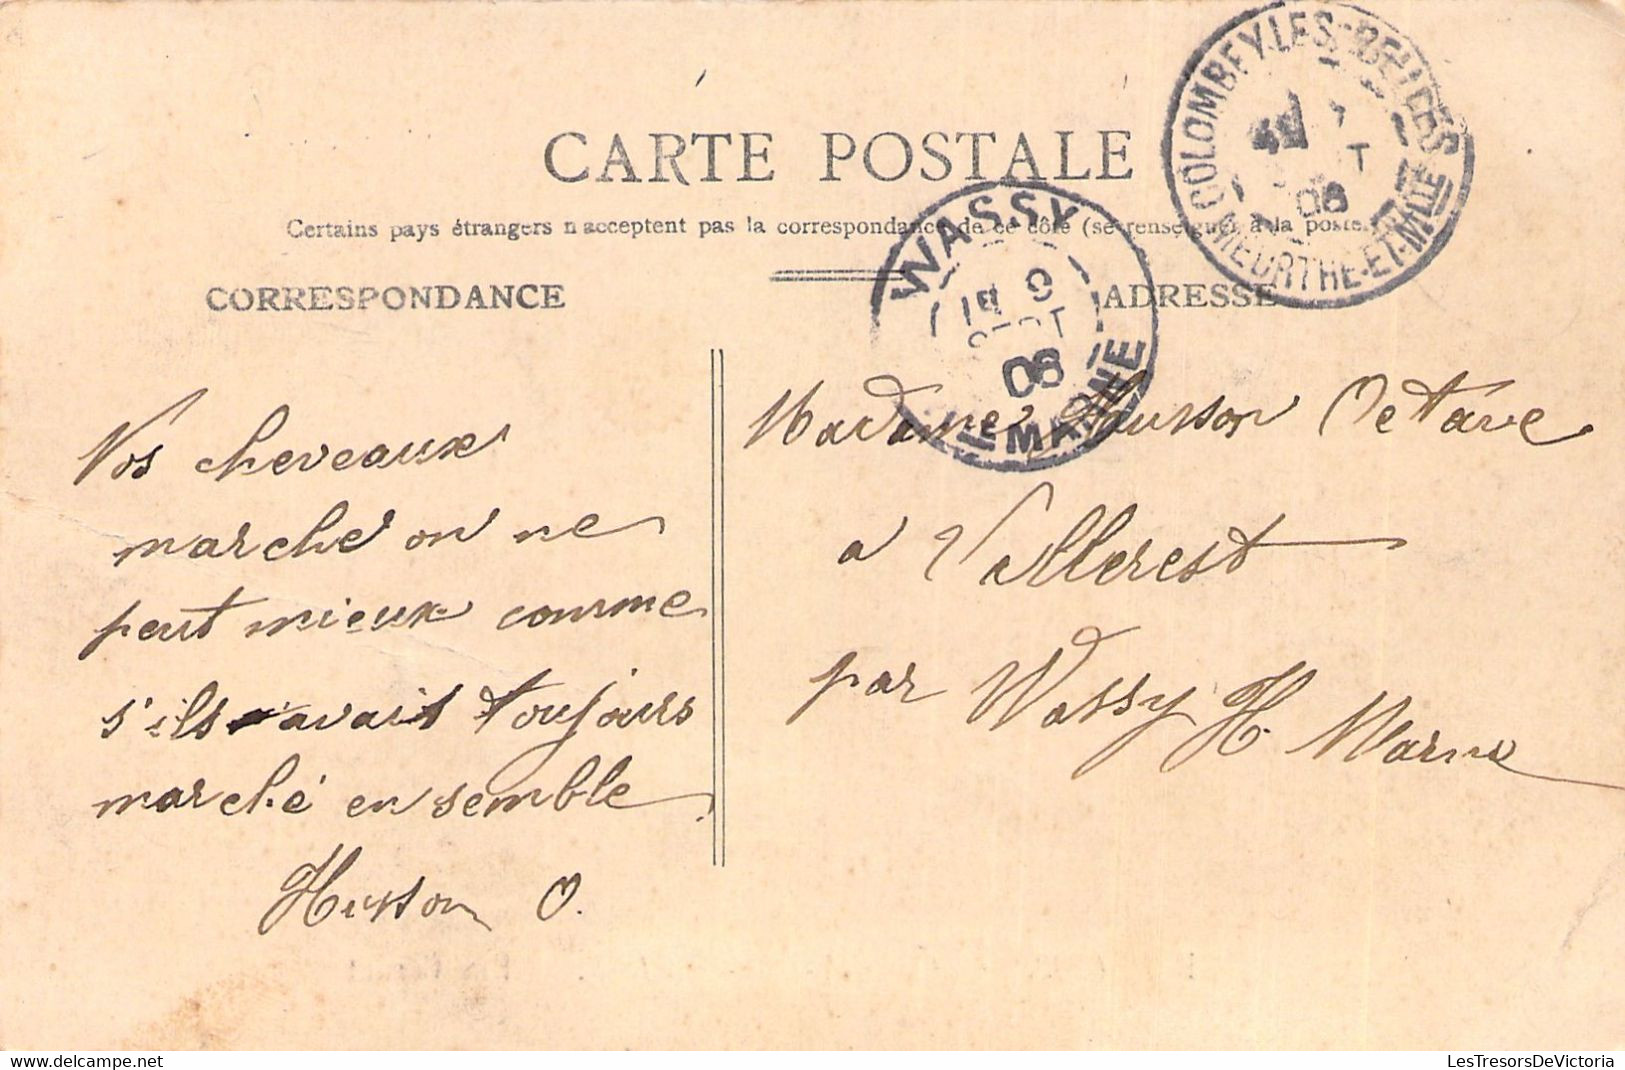 CARTE POSTALE
Certains pays étrangers n'acceptent pas la correspondance de ce côté (se renseigner à la poste.)
CORRESPONDANCE
ADRESSE
COLOMBEY-LES-BELLES
MEURTHE-ET-MLLE
08
WASSY
SEPT
08
HTE MARNE
Vos cheveaux
marche on ne
peut mieux comme
s'ils avait toujours
marché en semble
Husson O.
Madame Husson Octave
a Vallerest
par Wassy H. Marne
LesTresorsDeVictoria